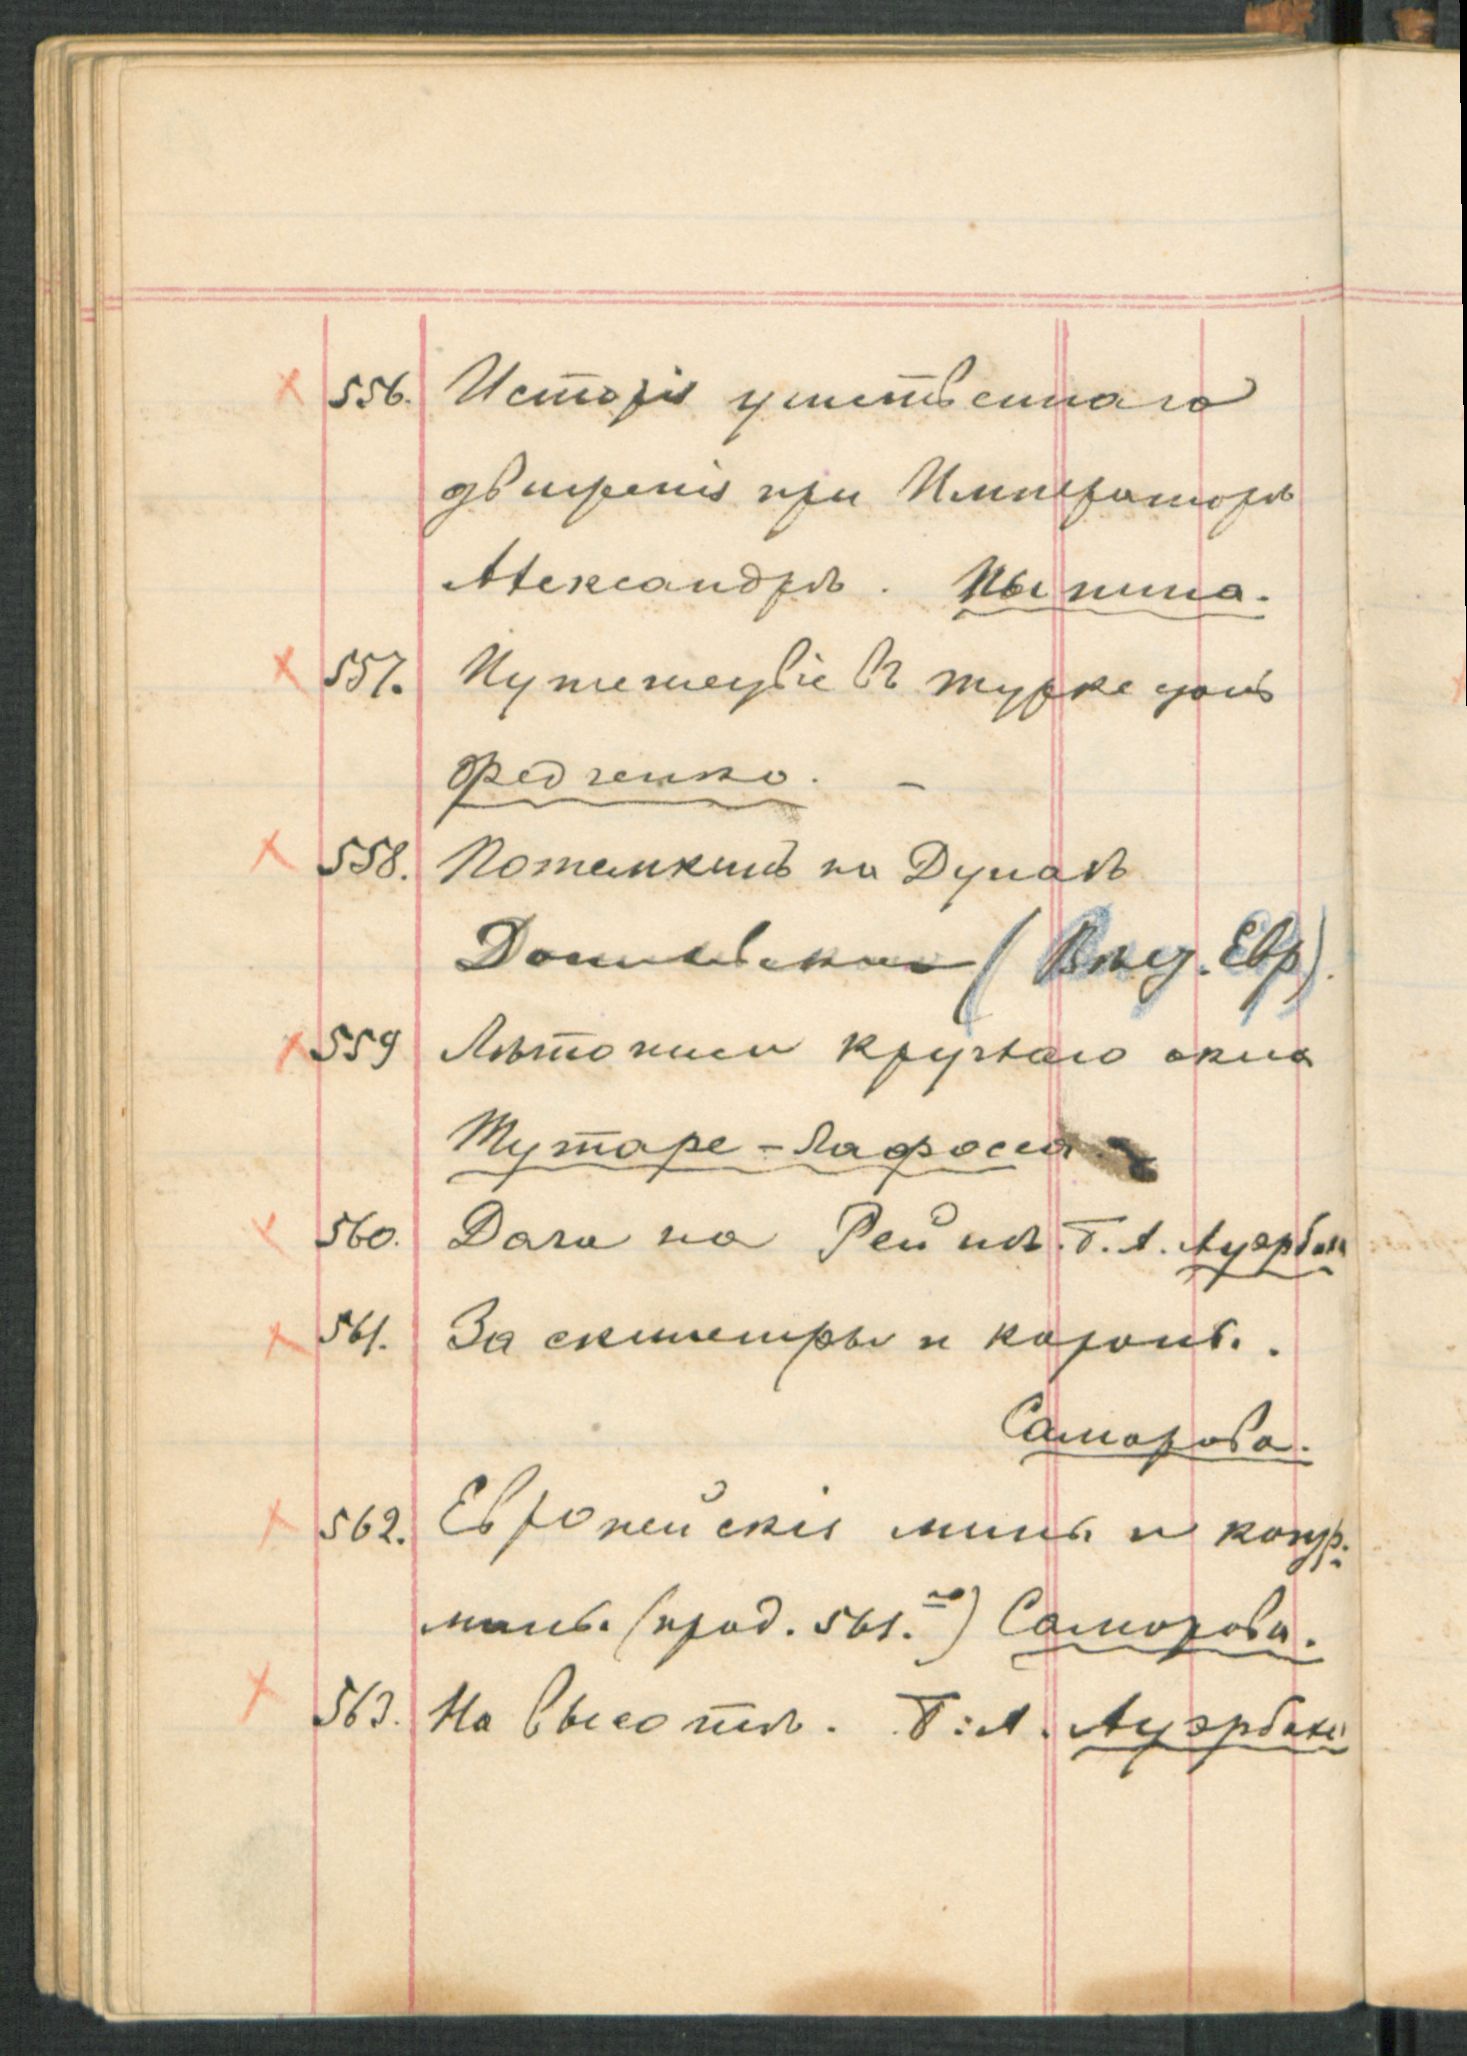 × 556. Исторія умственнаго
движенія при Императорѣ
Александрѣ. Пыпина.
× 557. Путешествіе въ Туркестанъ
Федченко. –
× 558. Потемкинъ на Дунаѣ
Данилевскаго (Вѣд. Евр).
× 559 Лѣтописи круглаго окна
Тутаре-Лафосса
× 560. Дача на Рейнѣ. Б. А. Ауэрбаха
× 561. За скипетры и короны.
Самарова.
× 562. Европейскія мины и контр-
мины. (прод. 561.го) Самарова.
× 563. На высотѣ. Б. А. Ауэрбаха